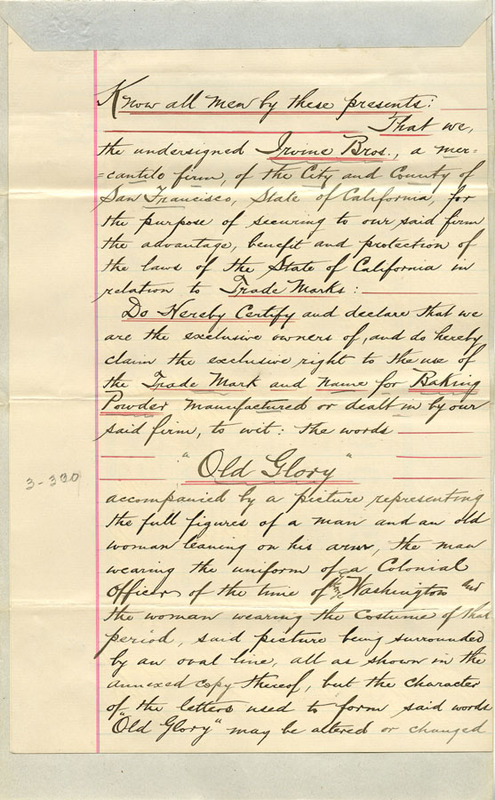 Know all men by these presents:
That we,
the undersigned Irvine Bros., a mer=
=cantile firm, of the City and County of
San Francisco, State of California, for
the purpose of securing to our said firm
the advantage, benefit and protection of
the laws of the State of California in
relation to Trade Marks:
Do Hereby Certify and declare that we
are the exclusive owners of, and do hereby
claim the exclusive right to the use of
the Trade Mark and name for Baking
Powder manufactured or dealt in by our
said firm, to wit: the words
"Old Glory"
3-330
accompanied by a picture representing
the full figures of a man and an old
woman leaning on his arm, the man
wearing the uniform of a Colonial
Officer of the time of Washington and
the woman wearing the costume of that
period, said picture being surrounded
by an oval line, all as shown in the
annexed copy thereof, but the character
of the letters used to form said words
"Old Glory" may be altered or changed